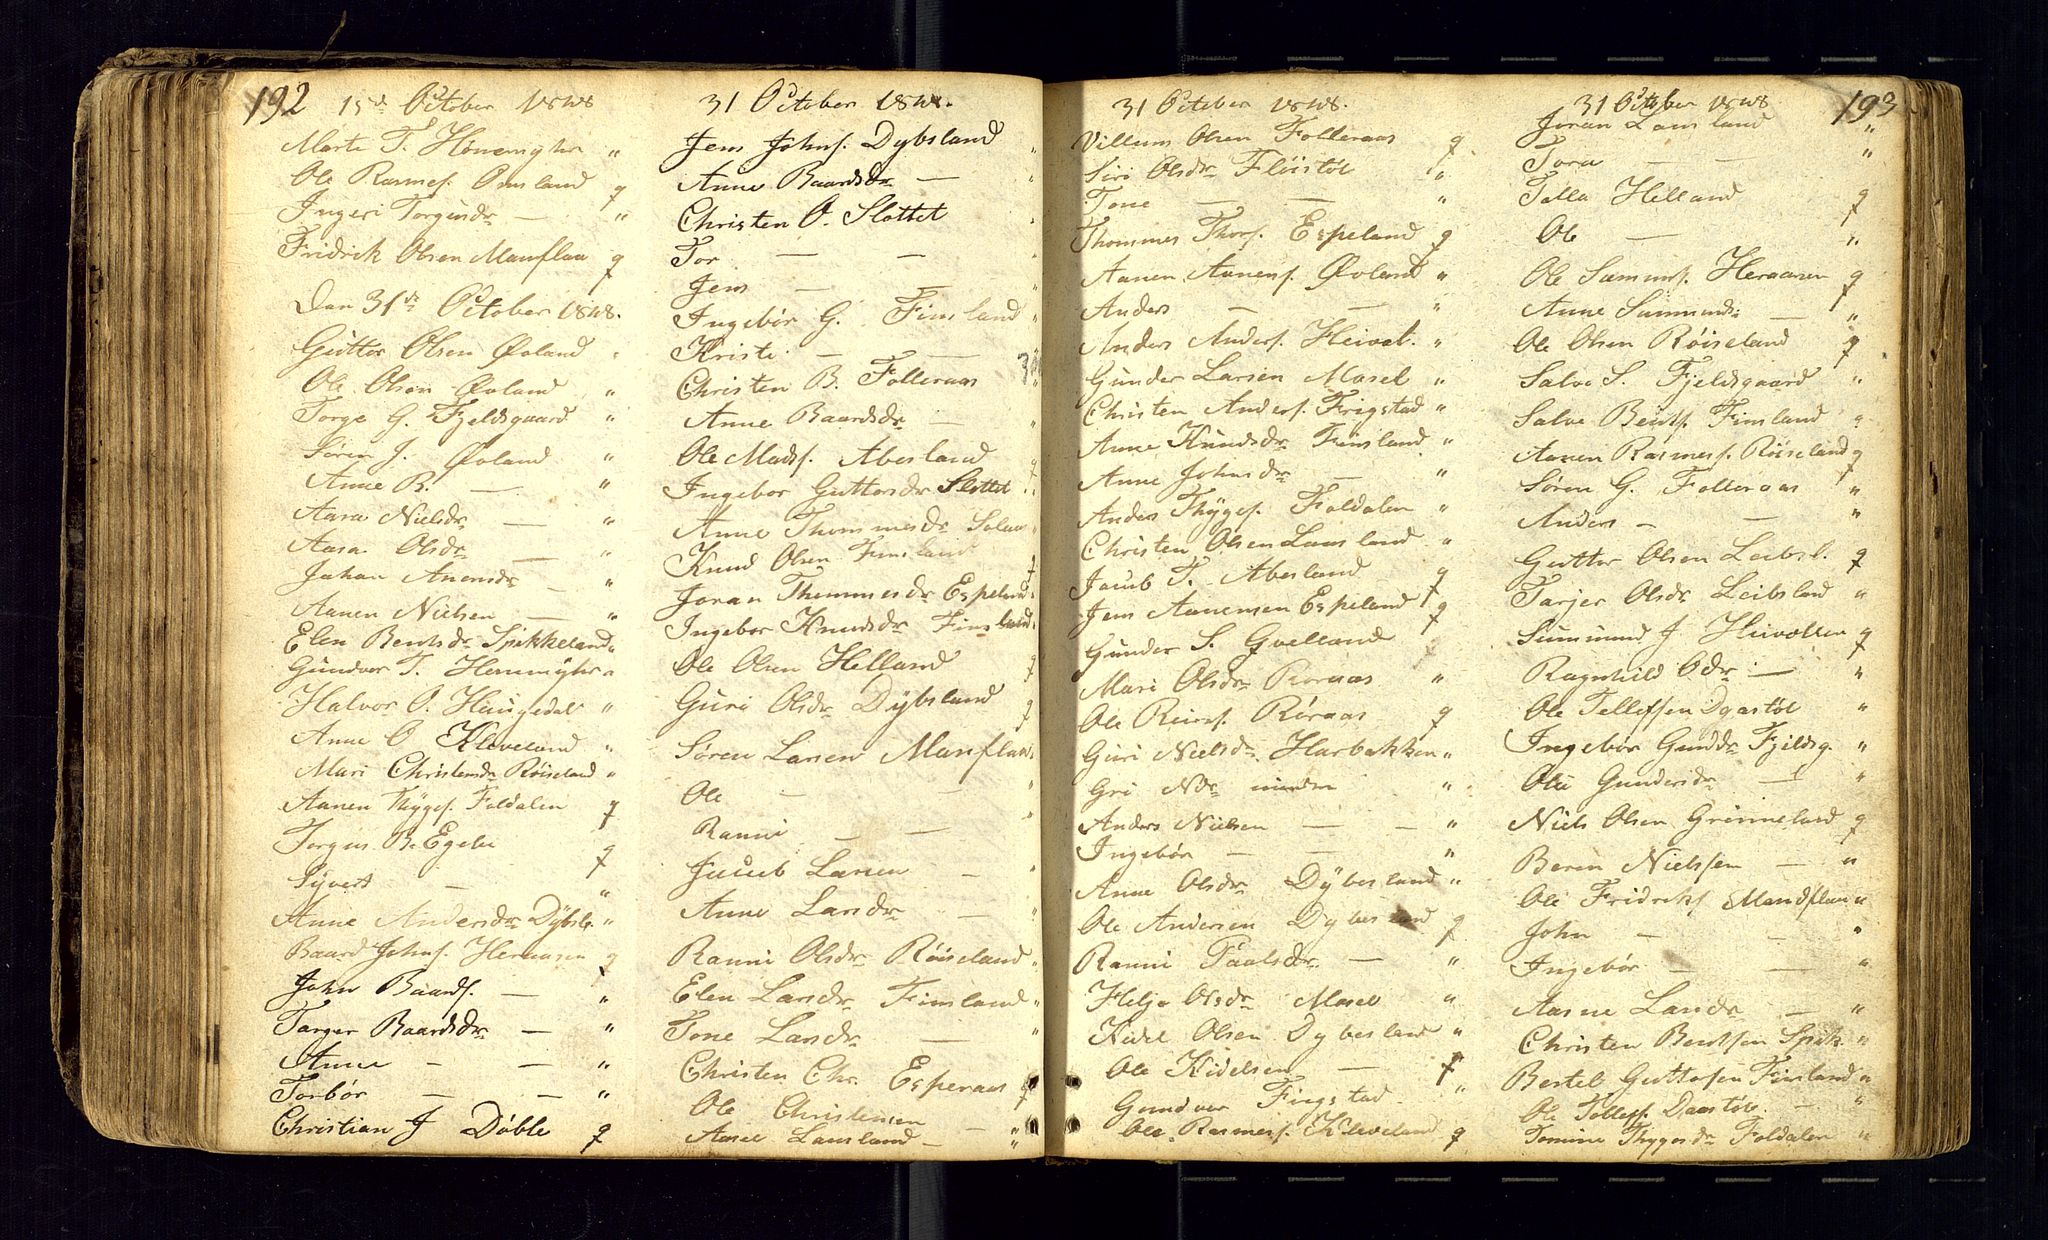 192 15de October 1848
Marte T. Hønemyhr "
Ole Rasmes. Omland g
Ingeri Torgusdr — "
Fridrik Olsen Manflaa g
Den 31de October 1848.
Guttor Olsen Øvland "
Ole Olsen Øvland "
Torge G. Fjeldsgaard "
Søren J. Øvland "
Anne B. — "
Aasa Nielsdr — "
Aasa Olsdr — "
Johan Anensdr — "
Aanen Nielsen — "
Elen Bentsdr Spikkeland "
Gundvor T. Hønemyhr "
Halvor O. Haugedal "
Anne O Kleveland "
Mari Christensdr Røiseland "
Aanen Thyges. Foldalen g
Torgus B. Egelie g
Syvert — "
Anne Andersdr Dybsl. "
Baard Johns. Heraasen g
John Baards. — "
Targer Baardsdr — "
Anne — — "
Torbør — — "
Christian J Døble g
31 October 1848.
Jens Johns. Dybsland "
Anne Baardsdr — "
Christen O. Slottet "
Tor — — "
Jens — — "
Ingebør G. Finsland "
Kristi — — "
Christen B. Folleraas "
Anne Baardsdr — "
Ole Mads. Abesland g
Ingebor Guttorsdr Slottet "
Anne Thommesdr Solaas "
Knud Olsen Finsland g
Joran Thommesdr Espeland "
Ingebor Knudsdr Finsland "
Ole Olsen Helland g
Guri Olsdr Dybsland g
Søren Larsen Manflaa "
Ole — — "
Ranni — — "
Jacob Larsen — "
Anne Larsdr — "
Ranni Olsdr Røiseland "
Elen Larsdr Finsland "
Tone Larsdr — "
Christen Chr. Esperaas g
Ole Christensen — "
Aasel Lausland — "
31 October 1848.
Villum Olsen Folleraas g
Siri Olsdr Fløistøl "
Tone — — "
Thommes Thors. Espeland g
Aanen Aanens. Øvland "
Anders — — "
Anders Anders. Heivol. "
Gunder Larsen Mosel "
Christen Anders. Frigstad "
Anne Knudsdr Finsland "
Anne Johnsdr — "
Anders Thyges. Foldalen "
Christen Olsen Lausland "
Jacob T. Abesland g
Jens Aanensen Espeland g
Gunder S. Qvelland
Mari Olsdr Roraas "
Ole Reiers. Røraas g
Guri Nielsdr Harbakken "
Gri Ndr mindre "
Anders Nielsen — — "
Ingebør — — "
Anne Olsdr Dybesland "
Ole Andersen Dybesland g
Ranni Taalsdr — "
Helje Olsdr Mosel "
Kidel Olsen Dybesland "
Ole Kidelsen — g
Gundvor Frigstad "
Ole Rasmess. Kleveland g
31 October 1848 193
Joran Lausland "
Tora — — "
Talla Helland g
Ole — "
Ole Sammuns. Heraasen g
Anne Sammundsdr — "
Ole Olsen Røiseland g
Salve S. Fjeldsgaard "
Salve Bents. Finsland "
Aanen Rasmess. Røiseland g
Søren G. Folleraas "
Anders — — "
Guttor Olsen Leibsl. g
Tarjer Olsdr Leibsland "
Sammund J. Heivollen g
Ragnhild Odr — "
Ole Tellefsen Daastøl "
Ingebor Gundr Fjeldsg. "
Olie Gundersdr — "
Niels Olsen Grinneland g
Beren Nielssen — "
Ole Fridriks. Mandflaa "
John — — "
Ingebør — — "
Aasne Larsdr — "
Christen Bentssen Spik. "
Bertel Guttorsen Finsland "
Ole Tellefs. Daastøl — "
Tomine Thygesdr Foldalen "